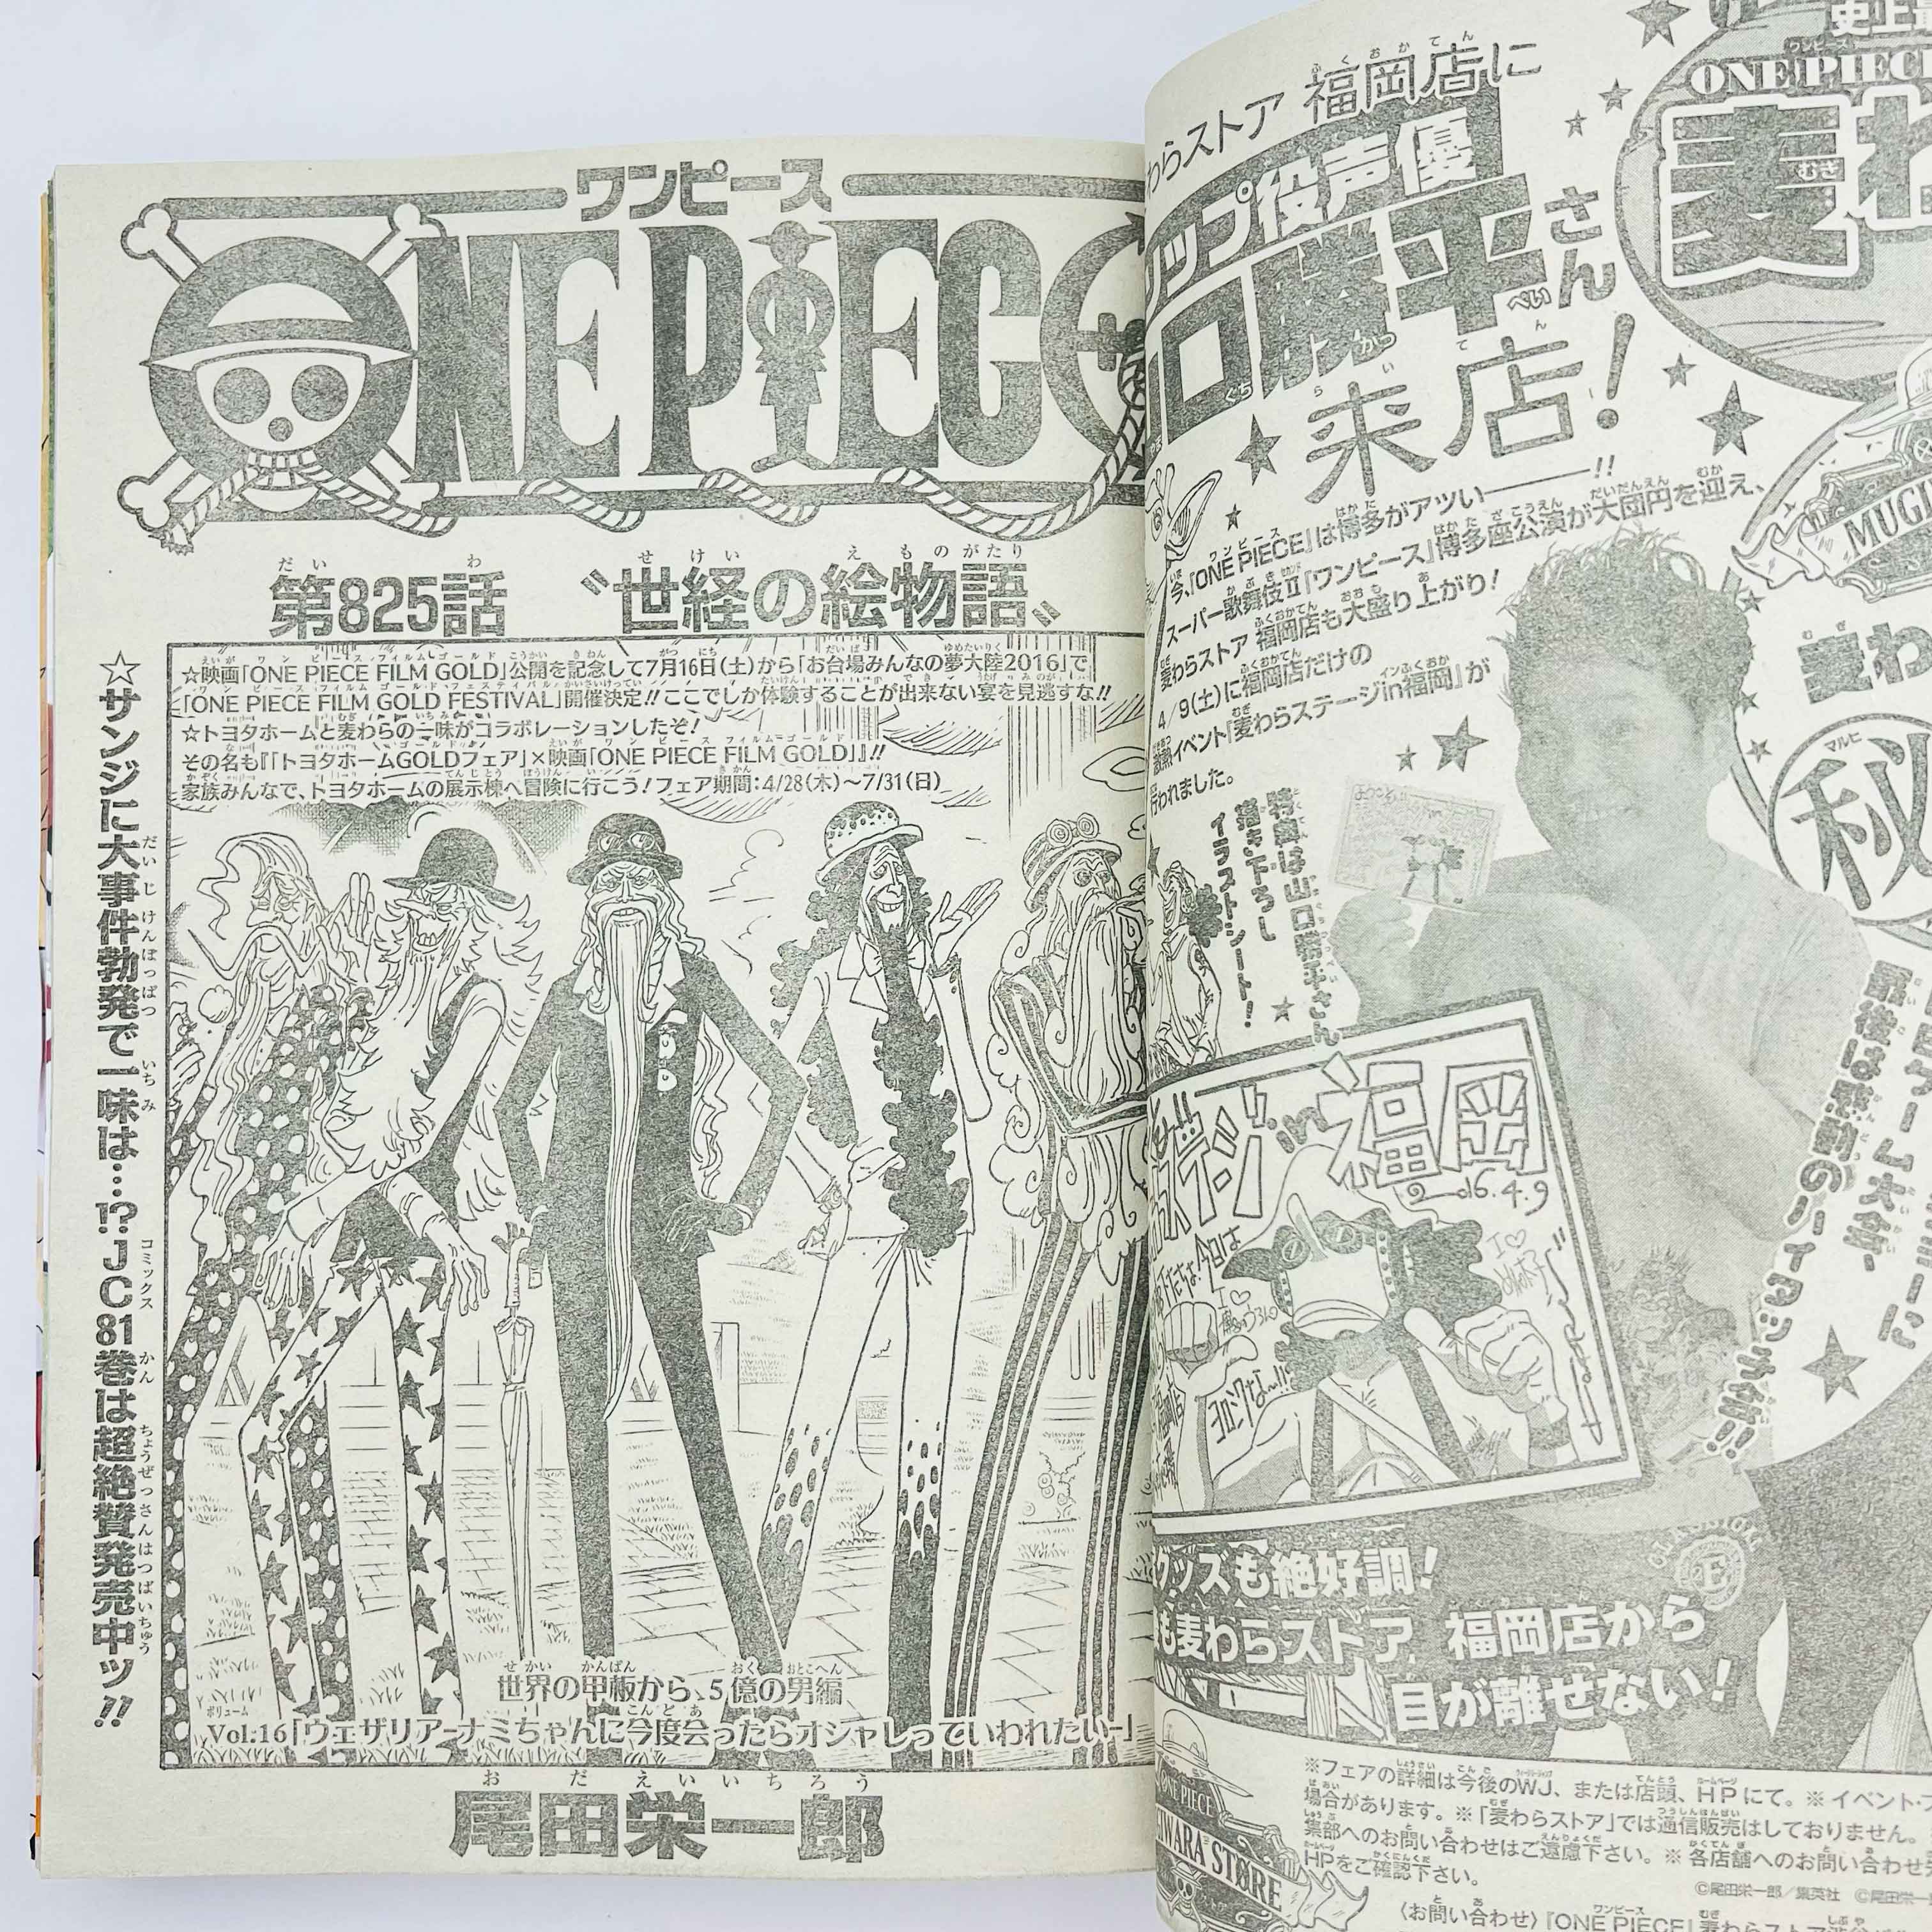 ワンピース
ONE PIEC
第825話 〝世経の絵物語〟
☆映画「ONE PIECE FILM GOLD」公開を記念して7月16日(土)から「お台場みんなの夢大陸2016」で
「ONE PIECE FILM GOLD FESTIVAL」開催決定!!ここでしか体験することが出来ない宴を見逃すな!!
☆トヨタホームと麦わらの一味がコラボレーションしたぞ!
その名も『「トヨタホームGOLDフェア」×映画「ONE PIECE FILM GOLD」』!!
家族みんなで、トヨタホームの展示棟へ冒険に行こう!フェア期間:4/28(木)〜7/31(日)
☆サンジに大事件勃発で一味は…!?JC81巻は超絶賛発売中ッ!!
世界の甲板から、5億の男編
Vol.16「ウェザリア-ナミちゃんに今度会ったらオシャレっていわれたい-」
尾田栄一郎
わらストア 福岡店に
ップ役声優
口勝平さん
来店!
今、『ONE PIECE』は博多がアツい――!!
スーパー歌舞伎Ⅱ『ワンピース』博多座公演が大団円を迎え、
麦わらストア 福岡店も大盛り上がり!
4/9(土)に福岡店だけの
激熱イベント『麦わらステージin福岡』が
行われました。
特典は山口勝平さん
描き下ろし
イラストシート!
ONE PIECE
麦わ
MUGI
麦わ
マルヒ
秘
最後は感動のハイタッチ会!!
in福岡
2016.4.9
グッズも絶好調!
も麦わらストア 福岡店から
目が離せない!
ONE PIECE
IWARA STORE
※フェアの詳細は今後のWJ、または店頭、HPにて。※イベント・フ
場合があります。※「麦わらストア」では通信販売はしておりません。
集部へのお問い合わせはご遠慮下さい。※各店舗へのお問い合わせ
HPをご確認下さい。
©尾田栄一郎/集英社 ©尾田栄一
〈お問い合わせ〉『ONE PIECE』麦わらストア